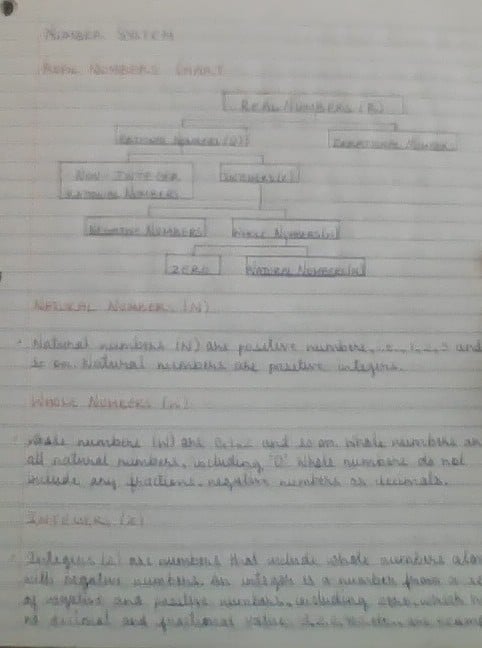 NUMBER SYSTEM
REAL NUMBERS CHART
REAL NUMBERS (R)
RATIONAL NUMBERS (Q) IRRATIONAL NUMBER
NON-INTEGER INTEGERS (Z)
RATIONAL NUMBERS
NEGATIVE NUMBERS WHOLE NUMBERS (W)
ZERO NATURAL NUMBERS (N)
NATURAL NUMBERS (N)
Natural numbers (N) are positive numbers, i.e., 1, 2, 3 and
so on. Natural numbers are positive integers.
WHOLE NUMBERS (W)
Whole numbers (W) are 0, 1, 2, and so on. Whole numbers are
all natural numbers, including "0" Whole numbers do not
include any fractions, negative numbers or decimals.
INTEGERS (Z)
Integers (Z) are numbers that include whole numbers along
with negative numbers. An integer is a number from a set
of negative and positive numbers, including zero, which
no decimal and fractional value. are